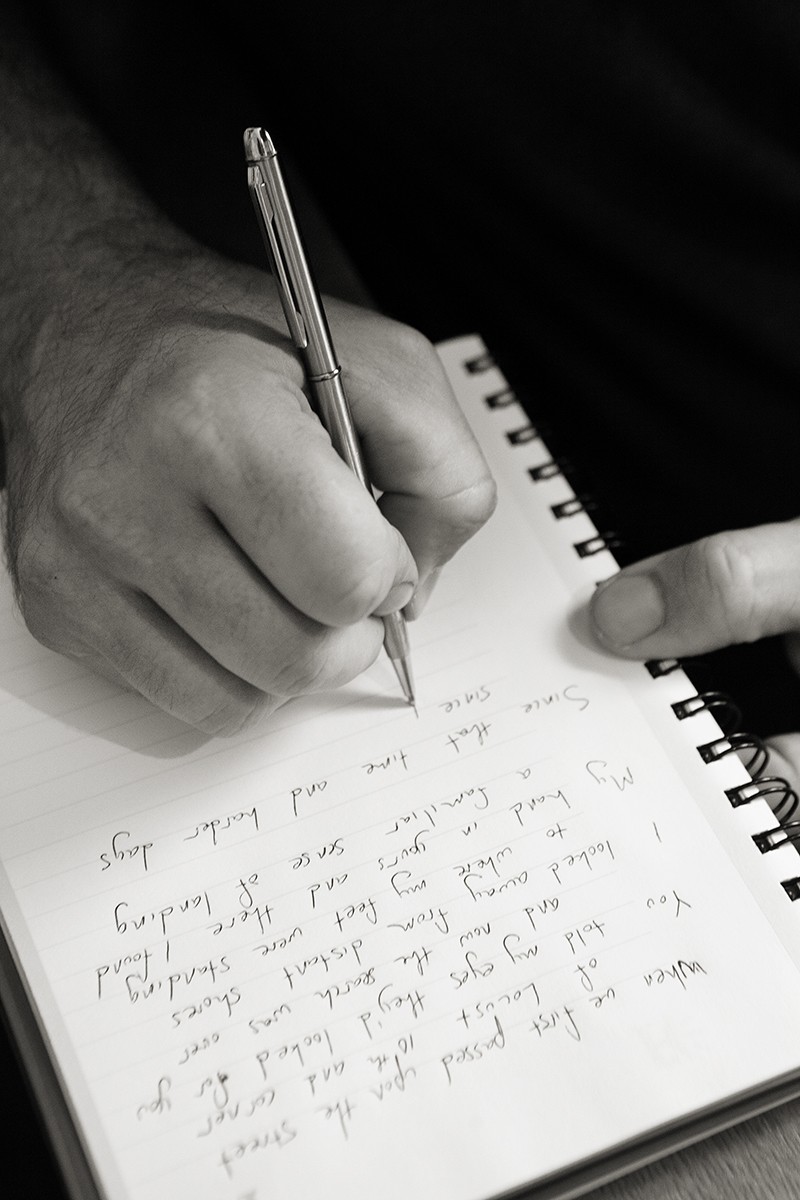 When we first passed upon the street
of Locust 10th and corner
You told my eyes they'd looked for you
and now the search was over
I looked away from distant shores
to where my feet were standing
My hand in yours and there I found
a familiar sense of landing
Since that time and harder days
since